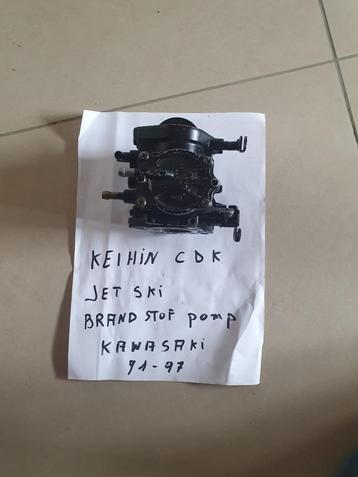 KEIHIN CDK
JET SKI
BRANDSTOF pomp
KAWASAKi
91-97